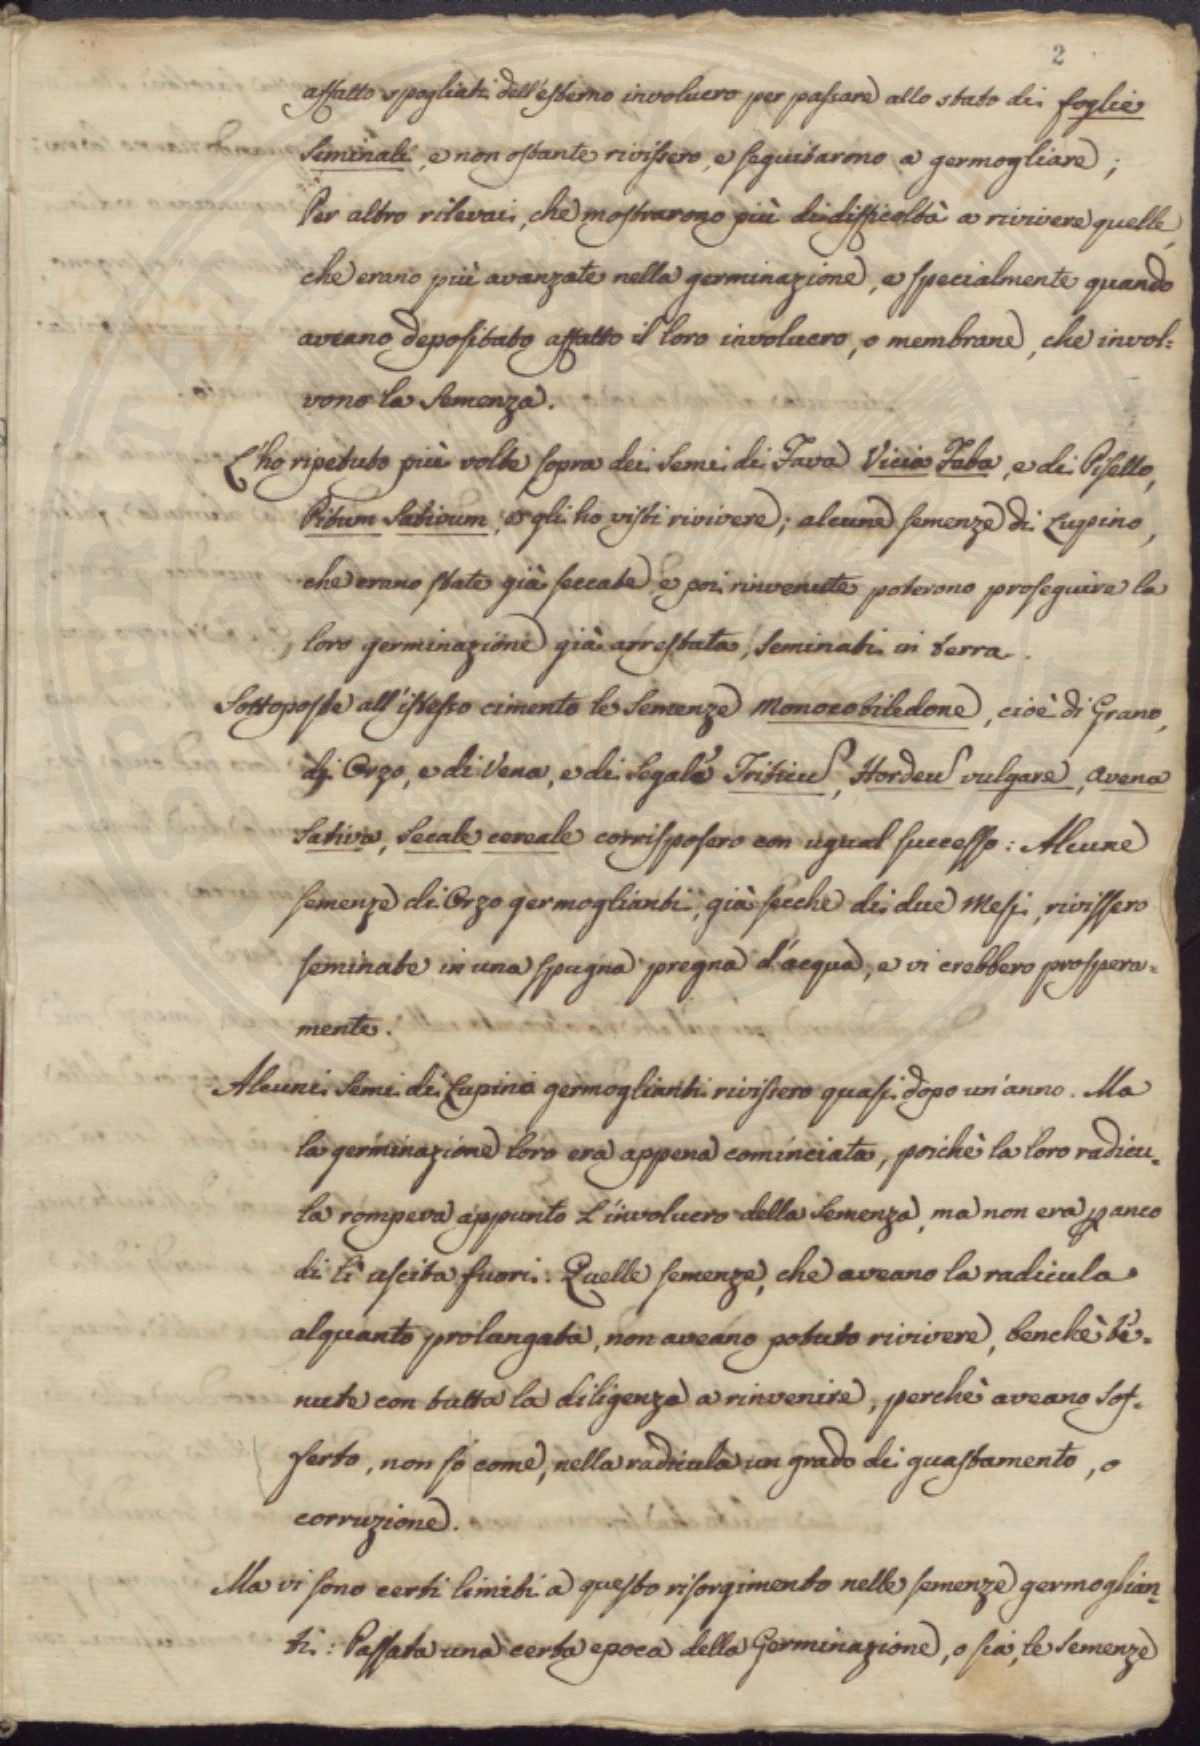 2
affatto spogliati dell'esterno involucro per passare allo stato di foglie
Seminali, e non ostante rivissero, e seguitarono a germogliare;
Per altro rilevai, che mostrarono più di difficoltà a rivivere quelle,
che erano più avanzate nella germinazione, e specialmente quando
aveano depositato affatto il loro involucro, o membrane, che invol=
vono la Semenza.
L'ho ripetuto più volte sopra dei Semi di Fava Vicia Faba, e di Pisello,
Pisum Sativum, e gli ho visti rivivere; alcune semenze di Lupino,
che erano state già seccate e poi rinvenute poterono proseguire la
loro germinazione già arrestata, seminati in terra.
Sottoposte all'istesso cimento le Semenze Monocotiledone, cioè di Grano,
di Orzo, e di Vena, e di Segale Triticu, Hordeu vulgare, Avena
Sativa, Secale cereale corrisposero con ugual successo: Alcune
semenze di Orzo germoglianti, già secche di due Mesi, rivissero
seminate in una spugna pregna d'acqua, e vi crebbero prospera=
mente.
Alcuni Semi di Lupini germoglianti rivissero quasi dopo un'anno. Ma
la germinazione loro era appena cominciata, poichè la loro radicu=
la rompeva appunto l'involucro della Semenza, ma non era panco
di lì uscita fuori: Quelle semenze, che aveano la radicula
alquanto prolungata, non aveano potuto rivivere, benchè te=
nute con tutta la diligenza a rinvenire, perchè aveano sof=
ferto, non sò come, nella radicula un grado di guastamento, o
corruzione.
Ma vi sono certi limiti a questo risorgimento nelle semenze germoglian=
ti: Passata una certa epoca della Germinazione, o sia, le Semenze